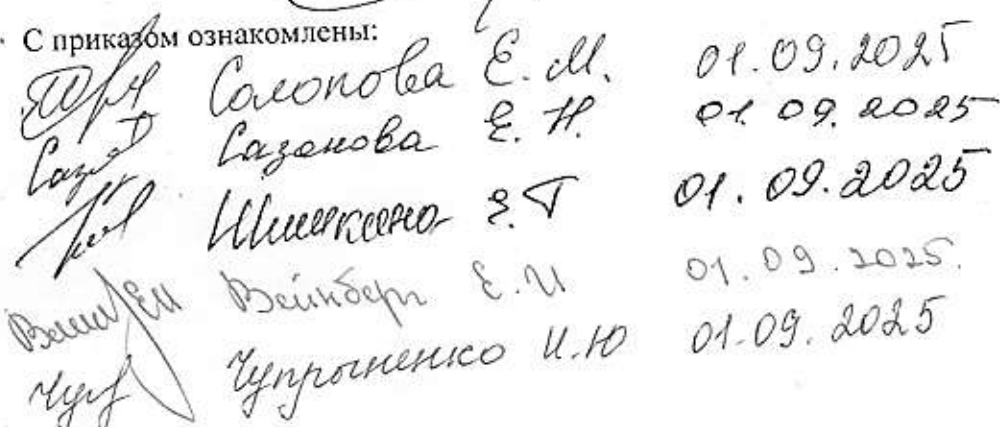 С приказом ознакомлены:
Солопова Е.М. 01.09.2025
Сазонова Е.Н. 01.09.2025
Шишкина Е.Г 01.09.2025
Вейнберг Е.И 01.09.2025.
Чупрыненко И.Ю 01.09.2025